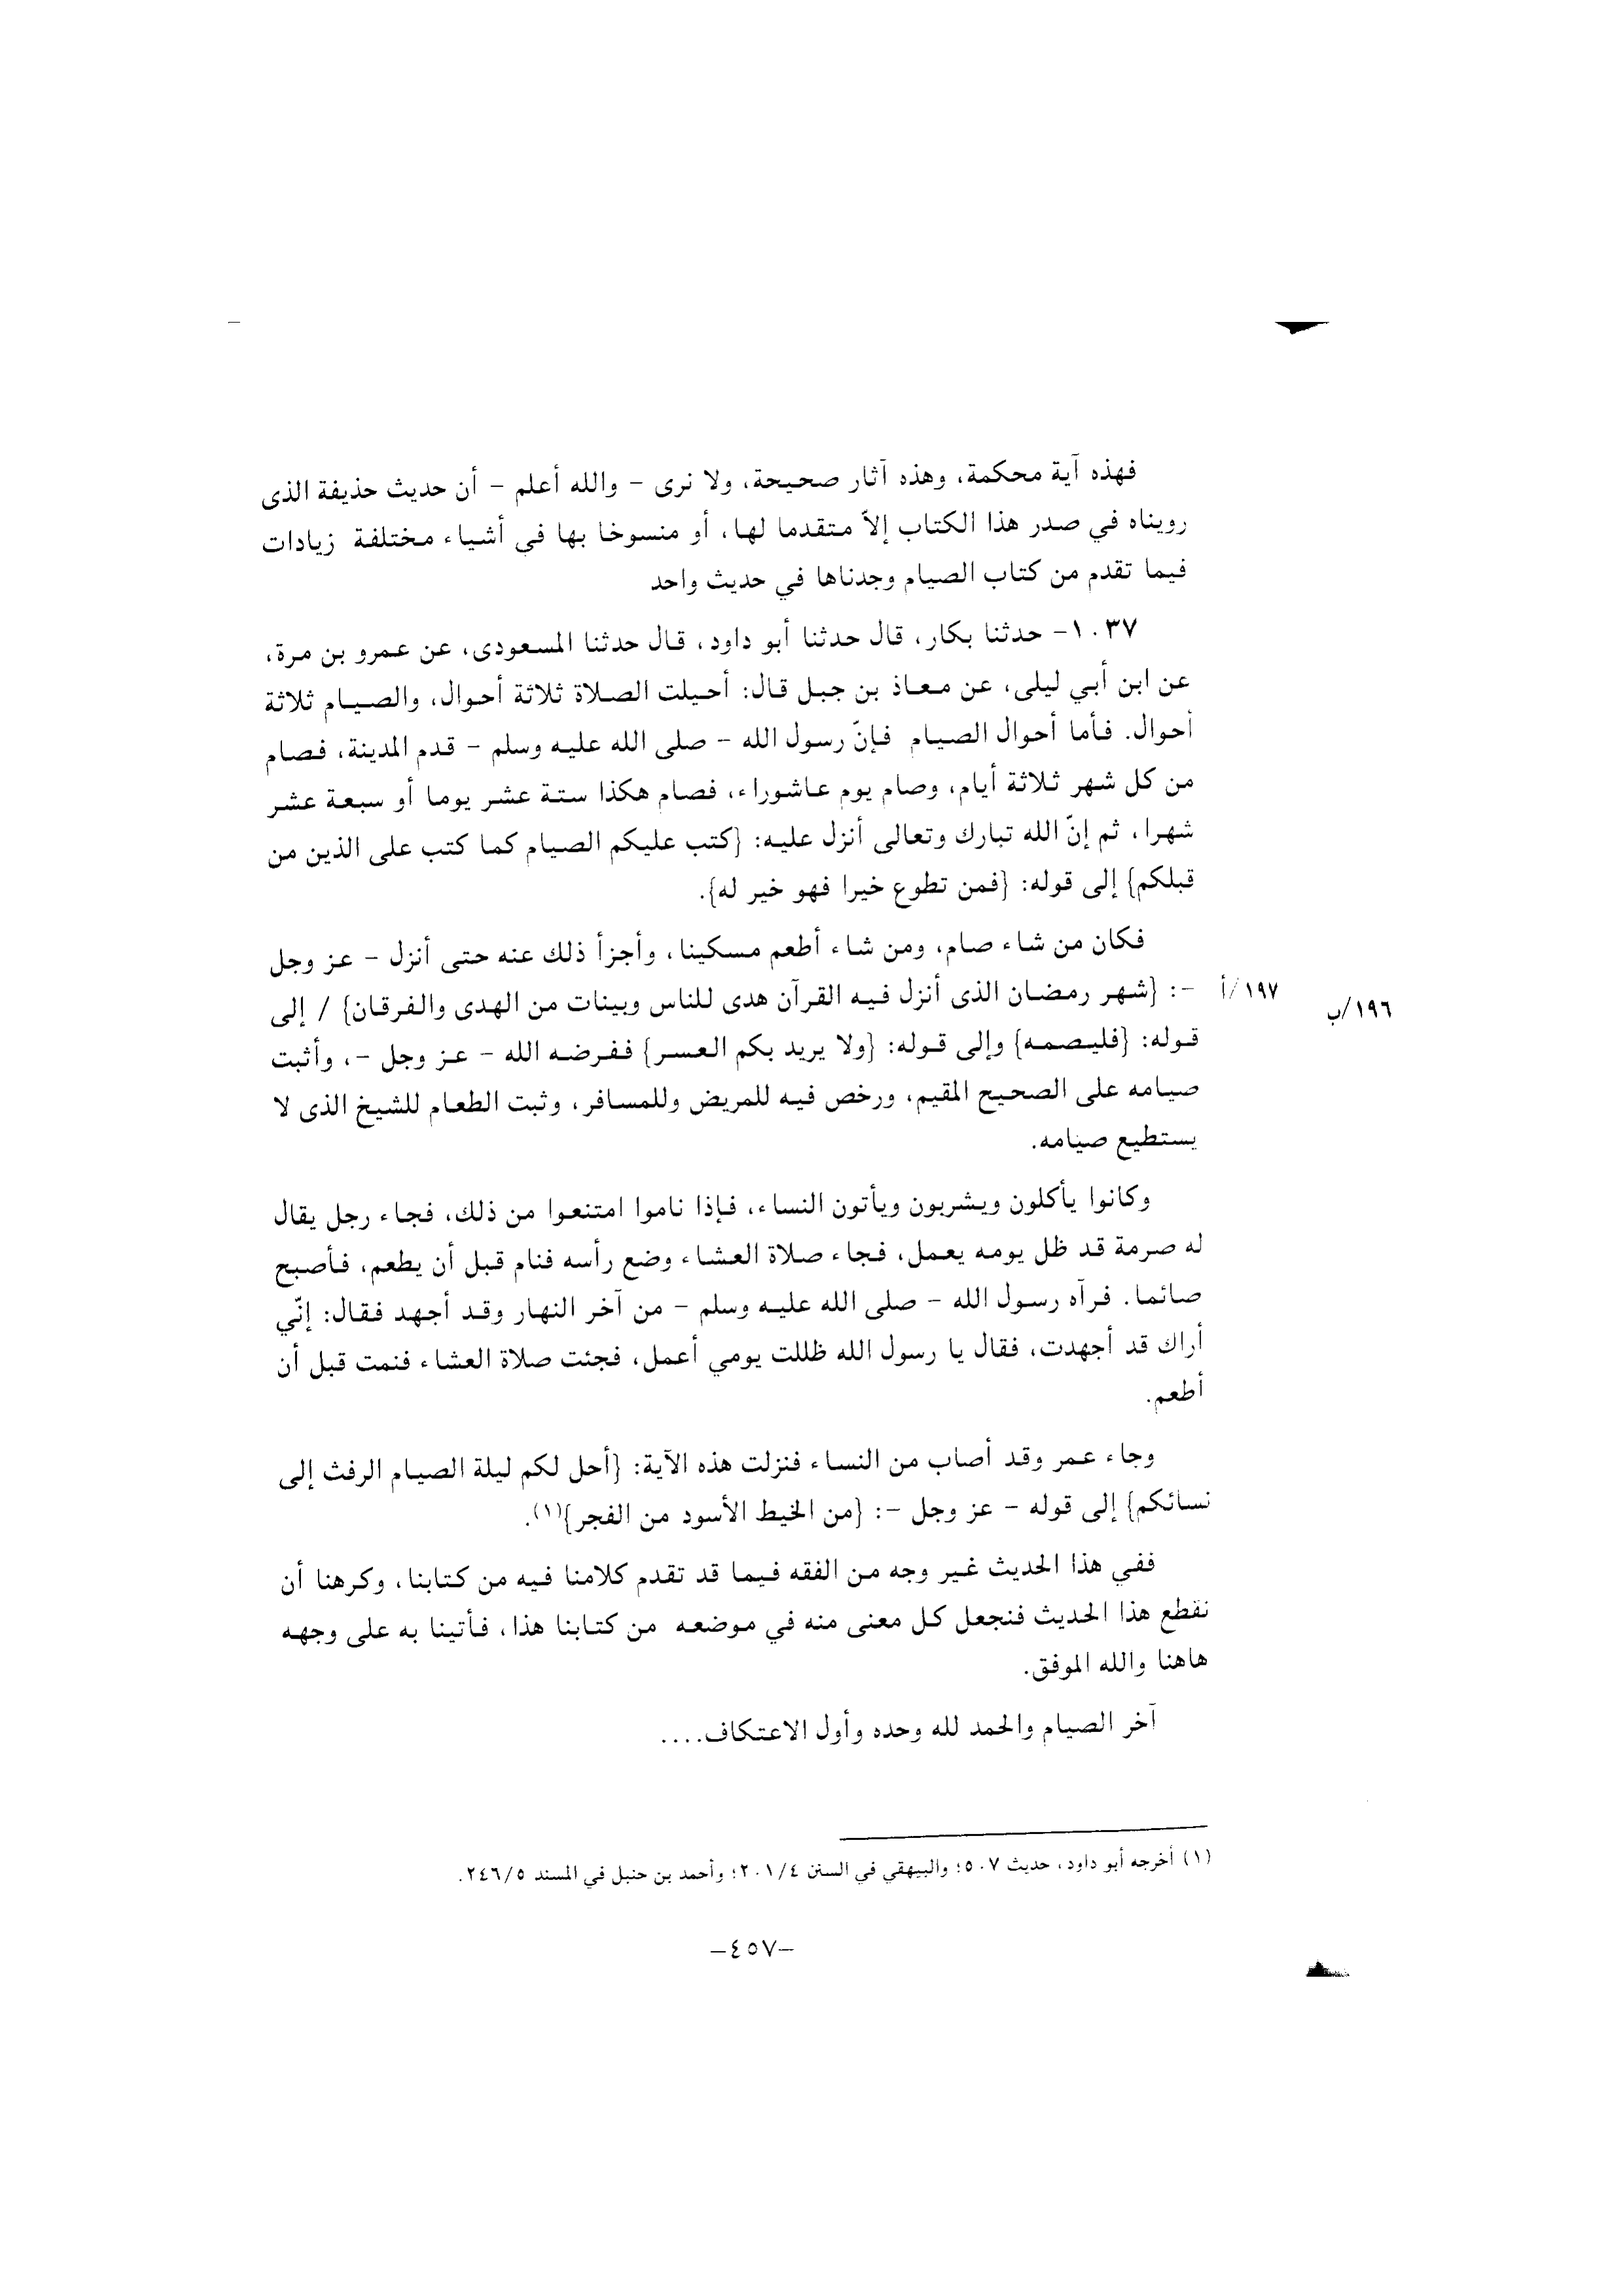 فهذه آية محكمة، وهذه آثار صحيحة، ولا نرى - والله أعلم - أن حديث حذيفة الذى
رويناه في صدر هذا الكتاب إلاّ متقدما لها، أو منسوخا بها في أشياء مختلفة زيادات
فيما تقدم من كتاب الصيام وجدناها في حديث واحد
١٠٣٧- حدثنا بكار، قال حدثنا أبو داود، قال حدثنا المسعودى، عن عمرو بن مرة،
عن ابن أبي ليلى، عن معاذ بن جبل قال: أحيلت الصلاة ثلاثة أحوال، والصيام ثلاثة
أحوال. فأما أحوال الصيام فإنّ رسول الله - صلى الله عليه وسلم - قدم المدينة، فصام
من كل شهر ثلاثة أيام، وصام يوم عاشوراء، فصام هكذا ستة عشر يوما أو سبعة عشر
شهرا، ثم إنّ الله تبارك وتعالى أنزل عليه: {كتب عليكم الصيام كما كتب على الذين من
قبلكم} إلى قوله: {فمن تطوع خيرا فهو خير له}.
فكان من شاء صام، ومن شاء أطعم مسكينا، وأجزأ ذلك عنه حتى أنزل - عز وجل
-: {شهر رمضان الذى أنزل فيه القرآن هدى للناس وبينات من الهدى والفرقان} / إلى
١٩٧/أ
١٩٦/ب
قوله: {فليصمه} وإلى قوله: {ولا يريد بكم العسر} ففرضه الله - عز وجل -، وأثبت
صيامه على الصحيح المقيم، ورخص فيه للمريض وللمسافر، وثبت الطعام للشيخ الذى لا
يستطيع صيامه.
وكانوا يأكلون ويشربون ويأتون النساء، فإذا ناموا امتنعوا من ذلك، فجاء رجل يقال
له صرمة قد ظل يومه يعمل، فجاء صلاة العشاء وضع رأسه فنام قبل أن يطعم، فأصبح
صائما. فرآه رسول الله - صلى الله عليه وسلم - من آخر النهار وقد أجهد فقال: إنّي
أراك قد أجهدت، فقال يا رسول الله ظللت يومي أعمل، فجئت صلاة العشاء فنمت قبل أن
أطعم.
وجاء عمر وقد أصاب من النساء فنزلت هذه الآية: {أحل لكم ليلة الصيام الرفث إلى
نسائكم} إلى قوله - عز وجل -: {من الخيط الأسود من الفجر}(١).
ففي هذا الحديث غير وجه من الفقه فيما قد تقدم كلامنا فيه من كتابنا، وكرهنا أن
نقطع هذا الحديث فنجعل كل معنى منه في موضعه من كتابنا هذا، فأتينا به على وجهه
هاهنا والله الموفق.
آخر الصيام والحمد لله وحده وأول الاعتكاف....
(١) أخرجه أبو داود، حديث ٥٠٧؛ والبيهقي في السنن ٢٠١/٤؛ وأحمد بن حنبل في المسند ٢٤٦/٥.
-٤٥٧-